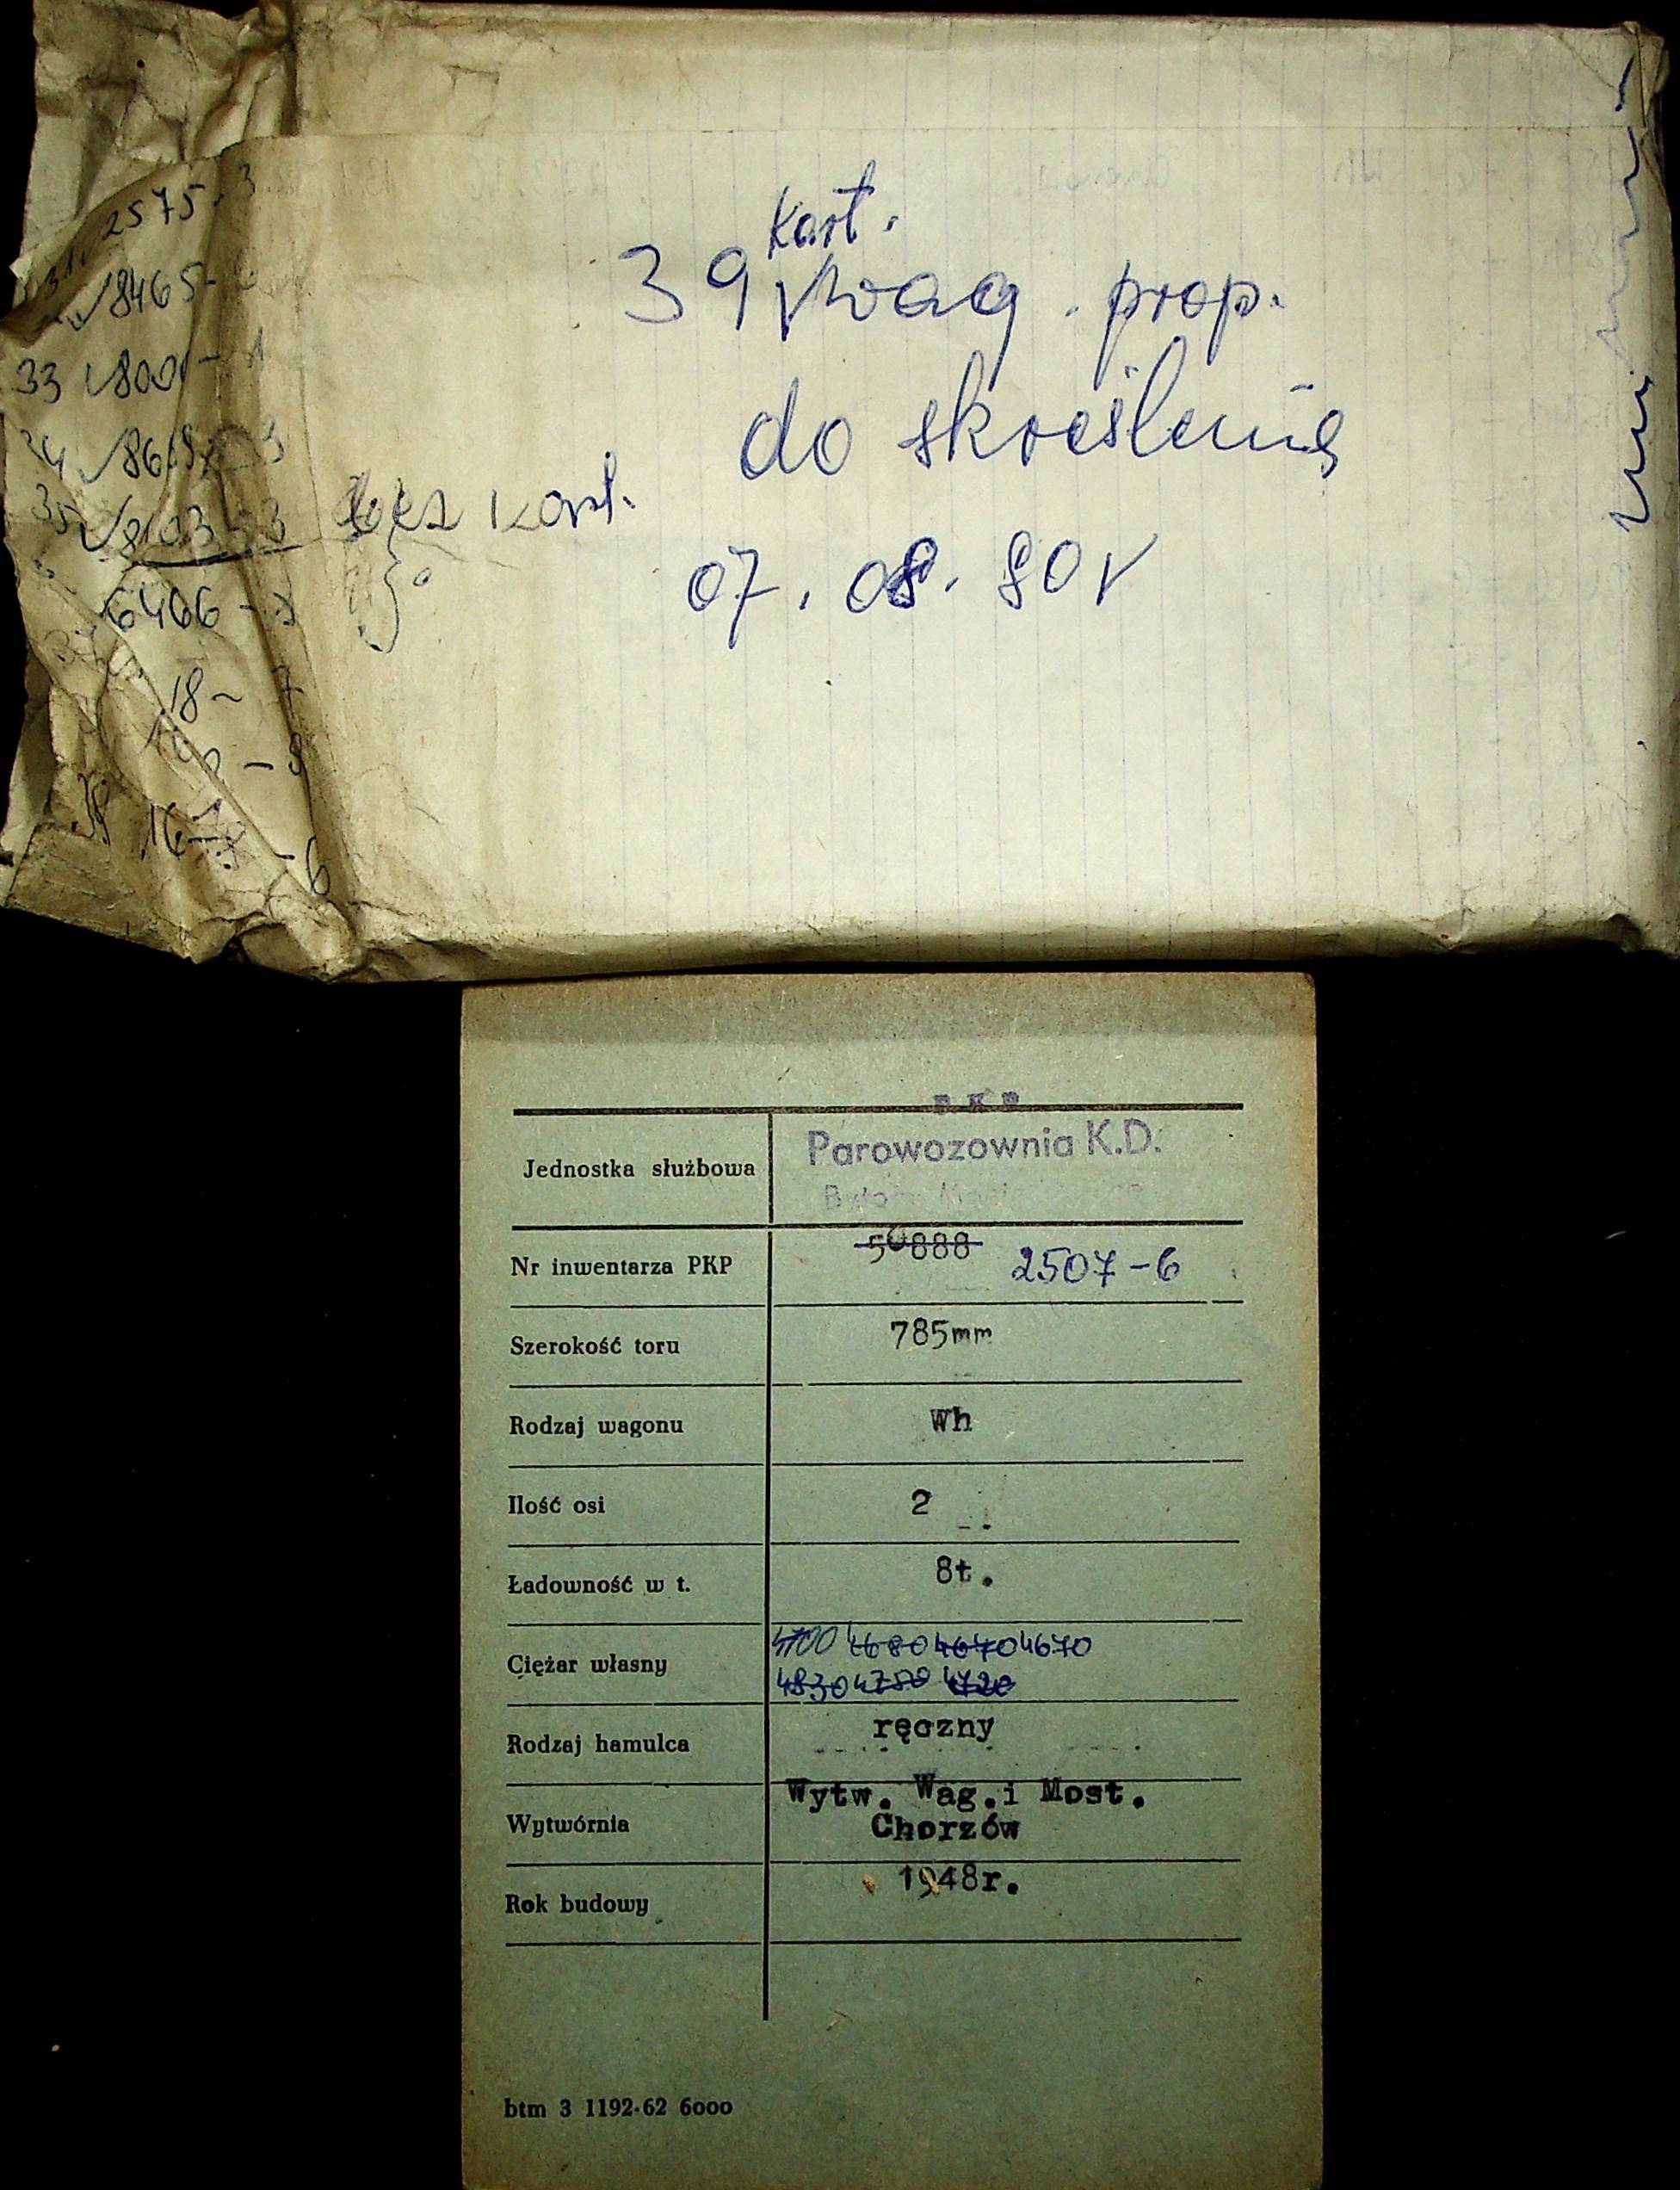 2575-3
31.
8465-
33 800 -1
34 86 3
35 8103-3 bez kart.
6406 -
18- 7
- 8
16 - 6
Kart.
39 wag. prop.
do skreślenia
07.08.90r
PKP
Jednostka służbowa Parowozownia K.D.
Nr inwentarza PKP 50888 2507-6
Szerokość toru 785mm
Rodzaj wagonu Wh
Ilość osi 2
Ładowność w t. 8t.
4700 4680 4670 4670
Ciężar własny 4830 4780 4720
Rodzaj hamulca ręczny
Wytw. Wag.i Most.
Wytwórnia Chorzów
Rok budowy 1948r.
btm 3 1192-62 6000